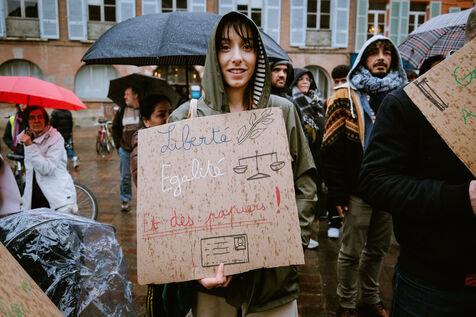 Liberté
Égalité
Et des papiers !